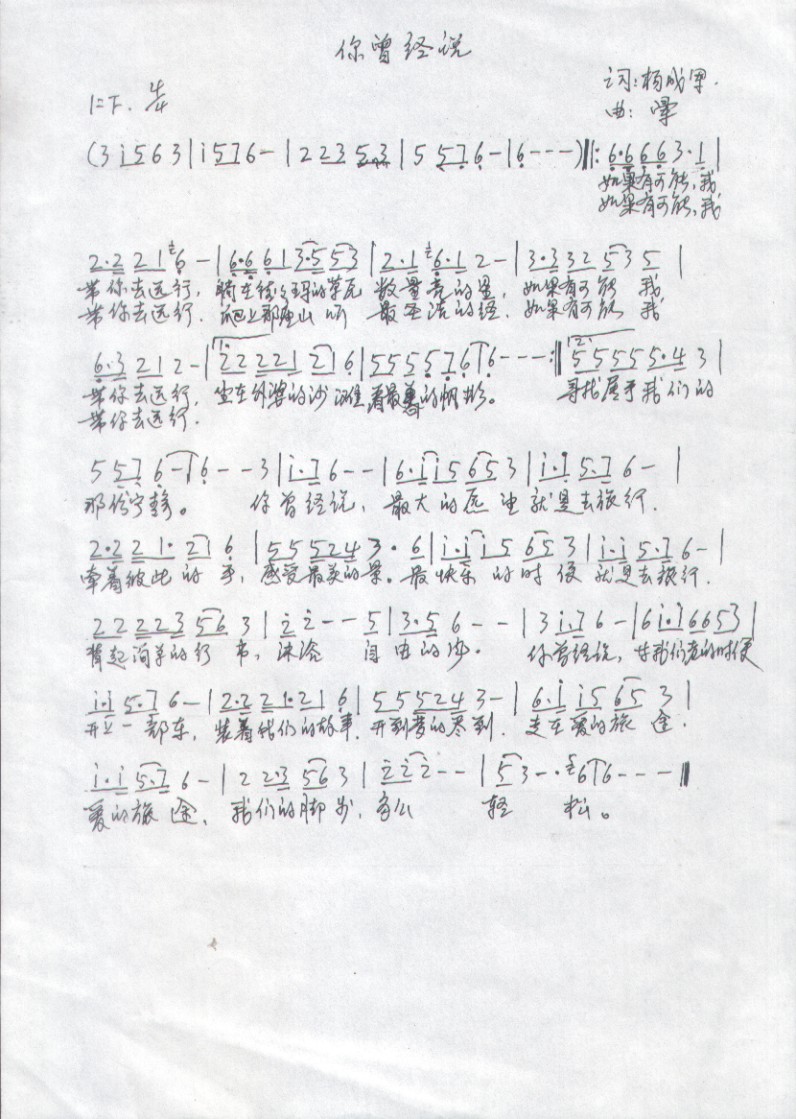 你曾经说
词:杨成军.
1=F. 4/4 曲:
(3 i 5 6 3 | i 5 7 6 - | 2 2 3 5 3 | 5 5 7 6 - | 6 - - - ) ‖: 6·6 6 6 3·1 |
如果有可能,我
如果有可能,我
2·2 2 1 6 - | 6·6 6 1 3·5 5 3 | 2·1 6·1 2 - | 3·3 3 2 5 3 5 |
带你去远行, 骑在 的草原 数最亮的星, 如果有可能 我
带你去远行. 爬上那座山 听 最圣洁的经. 如果有可能 我
6·3 2 1 2 - | 1. 2 2 2 2 1 2 6 | 5 5 5 5 5 7 6 | 6 - - - :‖ 2. 5 5 5 5 5·4 3 |
带你去远行, 坐在外婆的沙滩看最美的帆影。 寻找属于我们的
带你去远行.
5 5 7 6 - | 6 - - 3 | i·7 6 - - | 6·i i 5 6 5 3 | i·i 5·7 6 - |
那份宁静。 你曾经说, 最大的愿望就是去旅行.
2·2 2 1·2 6 | 5 5 5 2 4 3·6 | i·i i 5 6 5 3 | i·i 5·7 6 - |
牵着彼此的手, 感受最美的景。最快乐的时候 就是去旅行.
2 2 2 2 3 5 6 3 | 2 2 - - 5 | 3·5 6 - - | 3 i·7 6 - | 6 i·7 6 6 5 3 |
背起简单的行 , 沐浴 自由的 . 你曾经说, 我们老的时候
i·i 5·7 6 - | 2·2 2 1·2 1 6 | 5 5 5 2 4 3 - | 6·i i 5 6 5 3 |
开上一部车, 装着我们的故事, 开到梦的尽 . 走在爱的旅途.
i·i 5·7 6 - | 2 2·3 5 6 3 | 2 2 2 - - | 5 3 - · 6 | 6 - - - ‖
爱的旅途, 我们的脚步, 多么 轻 松。